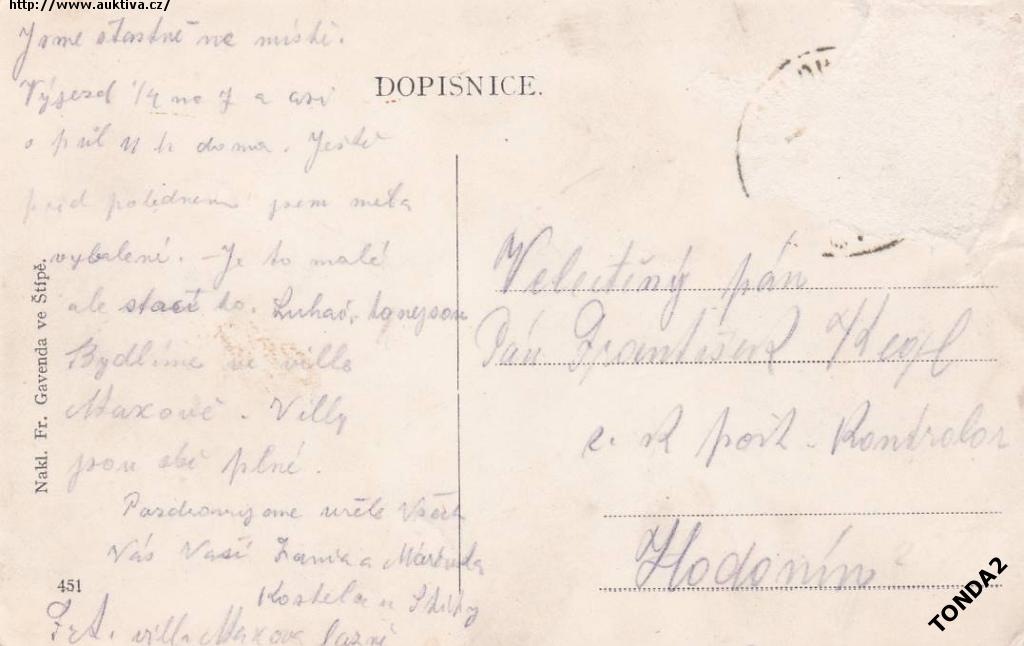 http://www.auktiva.cz/
Jsme šťastně na místě.
Výjezd 1/4 na 7 a asi
o půl 11 h doma. Ještě
před polednem jsem měla
vybalení. - Je to malé
ale stačí to. Luhač.
Bydlíme ve ville
Maxově. Villy
jsou obě plné.
Pozdravujeme vřele Všech
Vás Vaši a
Kostela u Štípy
villa Maxova lázně
451
Nakl. Fr. Gavenda ve Štípě.
DOPISNICE.
Velectěný pán
Pán František Kegl
c. k pošt. Kontrolor
Hodonín
TONDA2